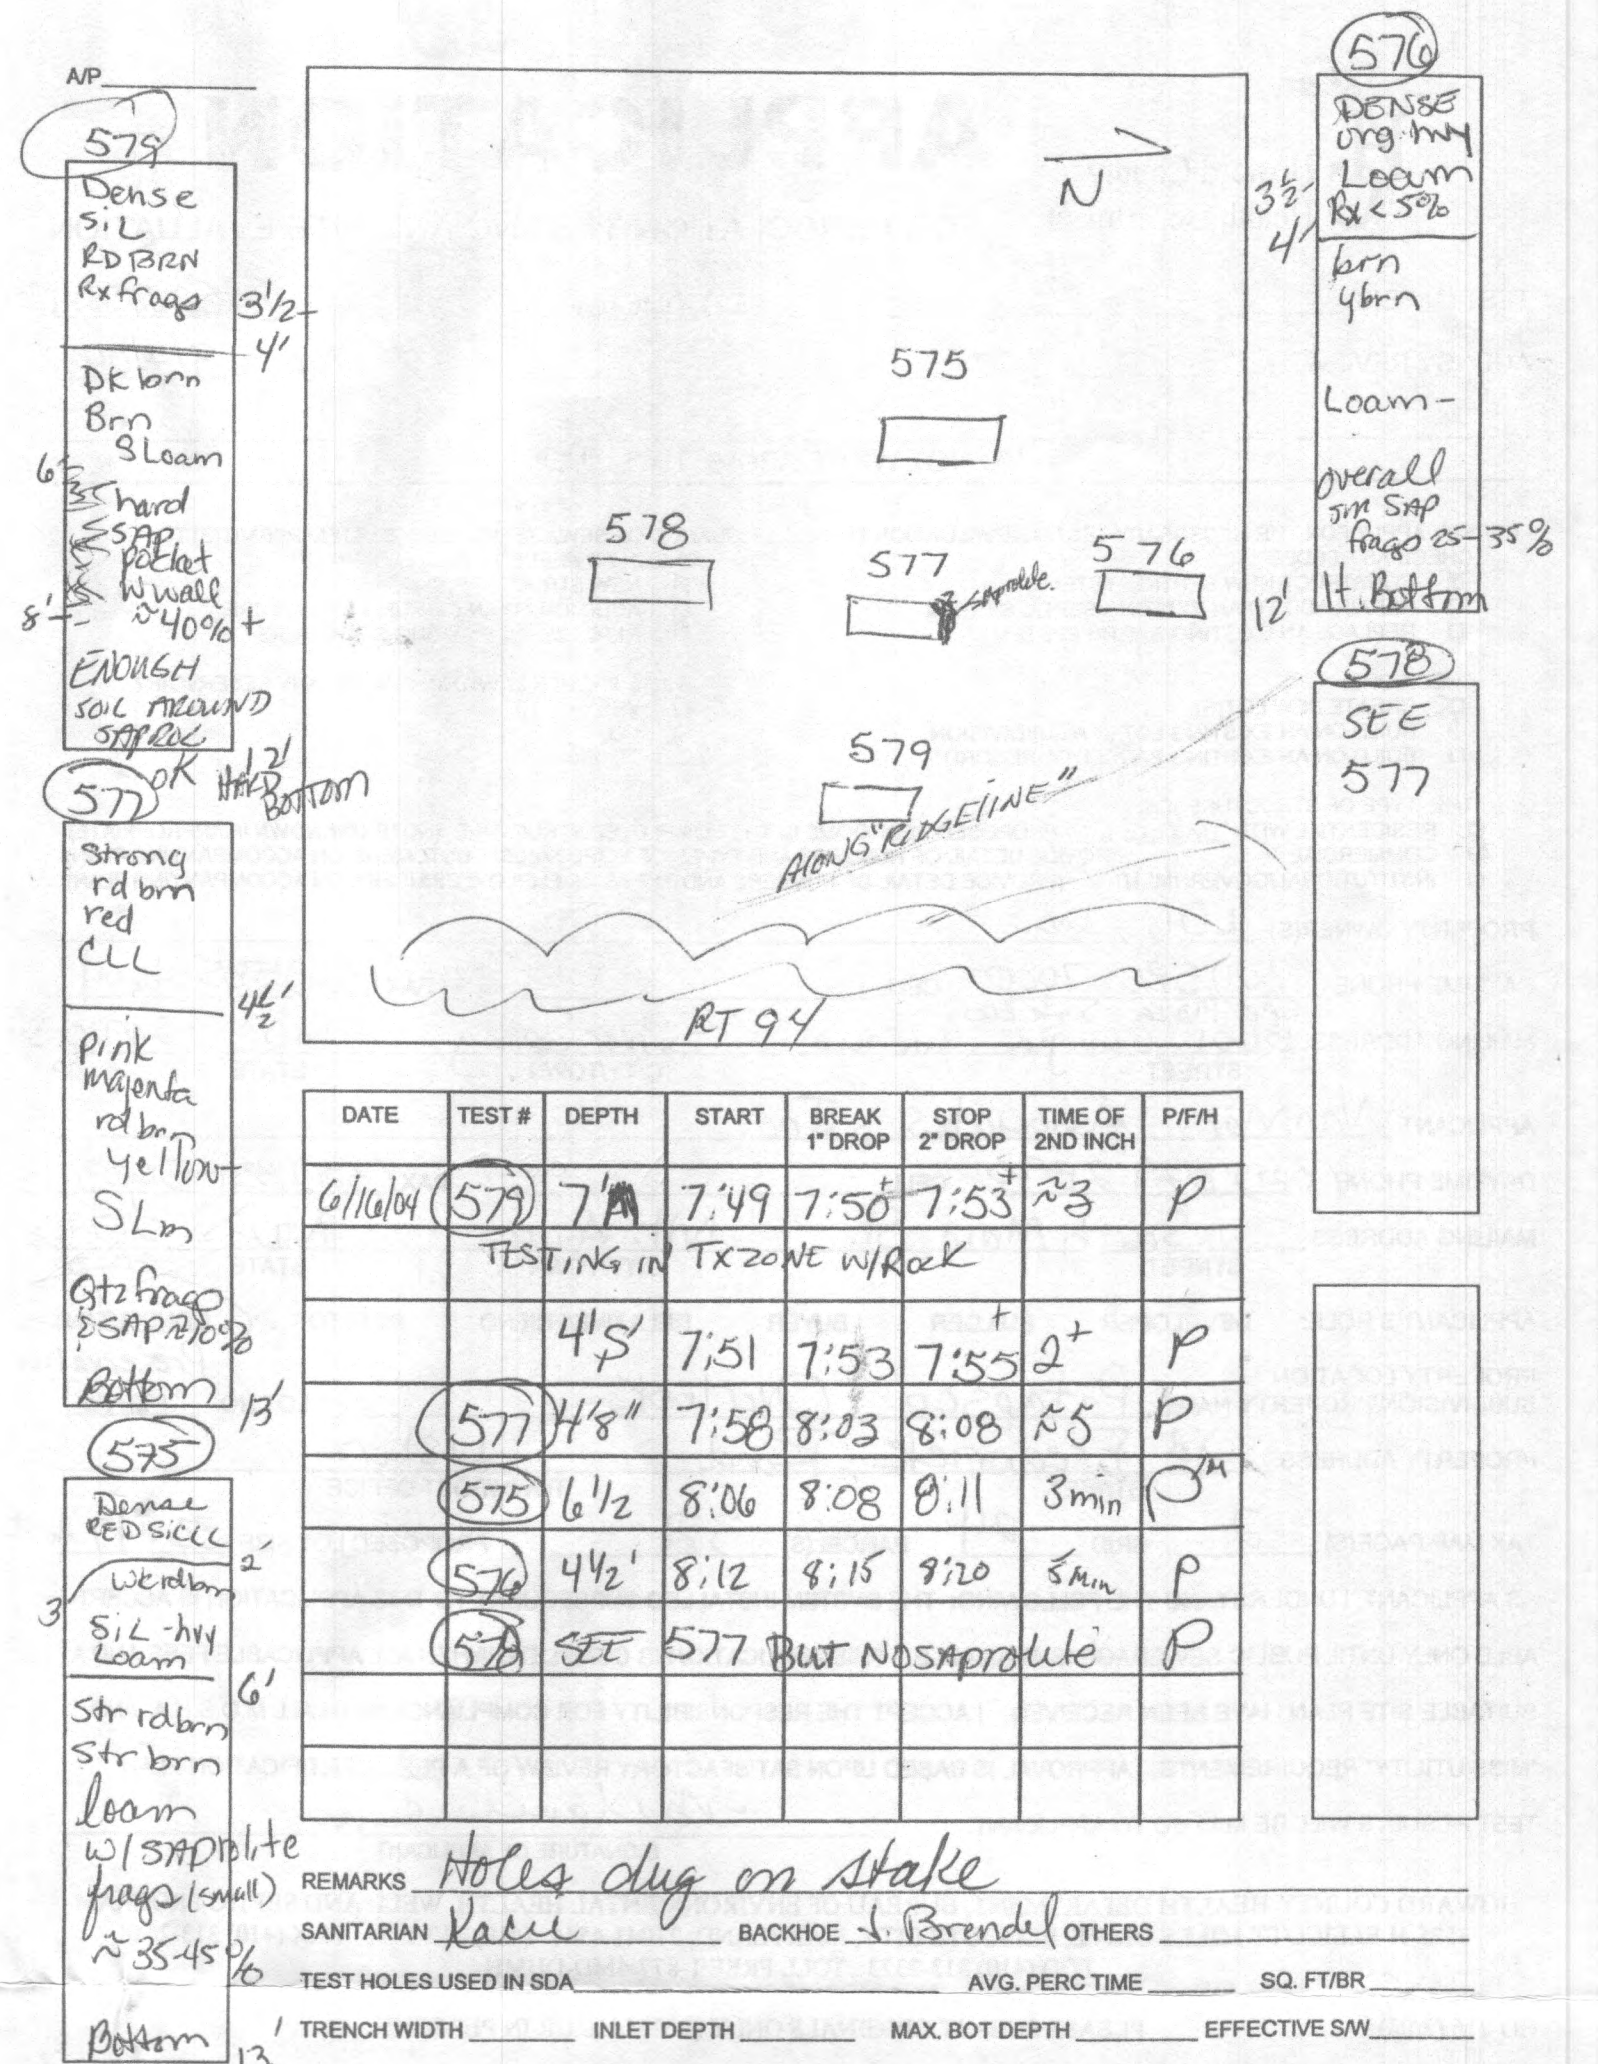 A/P
579
Dense
SiL
RD BRN
Rx frags
3 1/2
4'
DK brn
Brn
S Loam
6'
hard
SAP
pocket
W wall
≈ 40% +
8'
ENOUGH
SOIL AROUND
SAPROL
OK
12'
HARD
BOTTOM
577
Strong
rd brn
red
CLL
4 1/2'
pink
majenta
rd brn
yellow
SLm
Qtz frags
& SAP ≈ 10%
Bottom
13'
575
Dense
RED SiCLL
2'
3
wk rd brn
SiL - hvy
Loam
6'
Str rd brn
Str brn
loam
w/ SAProlite
frags (small)
≈ 35-45%
Bottom
13'
N
575
578
577
saprolite.
576
579
ALONG "RIDGELINE"
RT 94
576
DENSE
org. hvy
Loam
Rx < 5%
3 1/2
4'
brn
ybrn
Loam -
overall
sm SAP
frags 25-35%
12'
Bottom
578
SEE
577
DATE TEST # DEPTH START BREAK 1" DROP STOP 2" DROP TIME OF 2ND INCH P/F/H
6/16/04 579 7' 7:49 7:50+ 7:53+ ≈3 P
TESTING IN TX ZONE W/ROCK
4'S' 7:51 7:53 7:55+ 2+ P
577 4'8" 7:58 8:03 8:08 ≈5 P
575 6 1/2 8:06 8:08 8:11 3 min P
576 4 1/2' 8:12 8:15 8:20 5 min P
578 SEE 577 BUT NO SAprolite P
REMARKS Holes dug on stake
SANITARIAN BACKHOE J. Brendel OTHERS
TEST HOLES USED IN SDA AVG. PERC TIME SQ. FT/BR
TRENCH WIDTH INLET DEPTH MAX. BOT DEPTH EFFECTIVE S/W